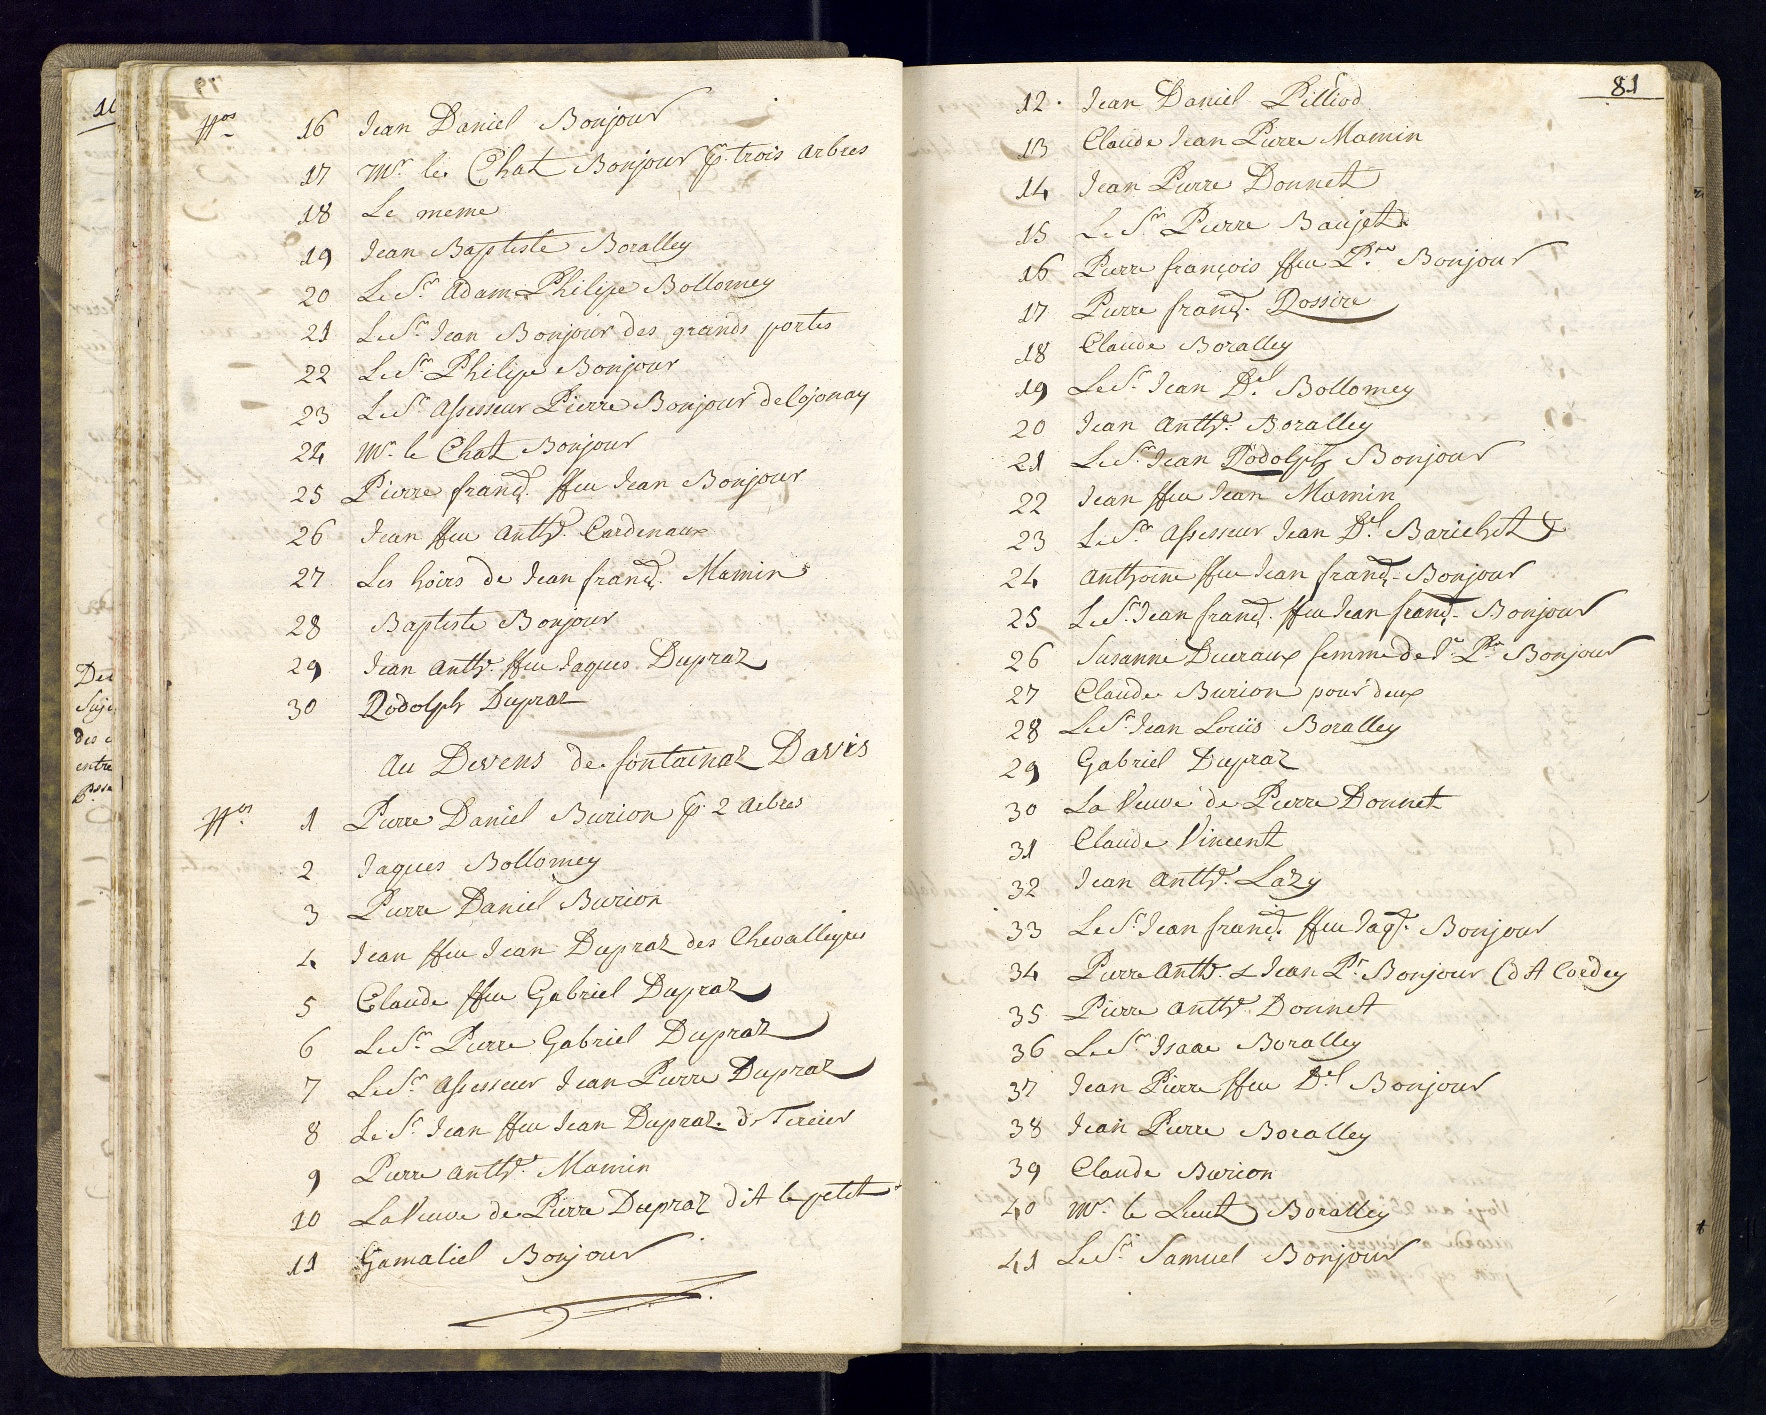 Nos 16 Jean Daniel Bonjour
17 Mr. le Chat. Bonjour p. trois arbres
18 Le meme
19 Jean Baptiste Boralley
20 Le Sr. Adam Philipe Bollomey
21 Le Sr. Jean Bonjour des grands portes
22 Le Sr. Philipe Bonjour
23 Le Sr. Assesseur Pierre Bonjour de Cojonay
24 Mr. le Chat. Bonjour
25 Pierre franç. ffeu Jean Bonjour
26 Jean ffeu Anthe. Cardenaux
27 Les hoirs de Jean franç. Mamin
28 Baptiste Bonjour
29 Jean Anthe. ffeu Jaques Dupraz
30 Rodolph Dupraz
Au Devens de fontainaz Davis
Nos 1 Pierre Daniel Burion p. 2 Arbres
2 Jaques Bollomey
3 Pierre Daniel Burion
4 Jean ffeu Jean Dupraz des Chevalleyres
5 Claude ffeu Gabriel Dupraz
6 Le Sr. Pierre Gabriel Dupraz
7 Le Sr. Assesseur Jean Pierre Dupraz
8 Le Sr. Jean ffeu Jean Dupraz dt Tercier
9 Pierre Anthe. Mamin
10 La Veuve de Pierre Dupraz dit le petit
11 Gamaliel Bonjour
81
12 Jean Daniel Pilliod
13 Claude Jean Pierre Mamin
14 Jean Pierre Donnet
15 Le Sr. Pierre Baujet
16 Pierre françois ffeu Pre. Bonjour
17 Pierre franç. Rossire
18 Claude Boralley
19 Le Sr. Jean Del. Bollomey
20 Jean Anthe. Boralley
21 Le Sr. Jean Rodolph Bonjour
22 Jean ffeu Jean Mamin
23 Le Sr. Assesseur Jean Del. Barichet
24 Anthoine ffeu Jean franç. Bonjour
25 Le Sr. Jean franç. ffeu Jean franç. Bonjour
26 Susanne Ducraux femme de Jn Pre Bonjour
27 Claude Burion pour deux
28 Le Sr. Jean Louis Boralley
29 Gabriel Dupraz
30 La Veuve de Pierre Donnet
31 Claude Vincent
32 Jean Anthe. Lazy
33 Le Sr. Jean franç. ffeu Jaq. Bonjour
34 Pierre Anth. & Jean Pre. Bonjour (dt Cordey
35 Pierre Anthe. Donnet
36 Le Sr. Isaac Boralley
37 Jean Pierre ffeu Del. Bonjour
38 Jean Pierre Boralley
39 Claude Burion
40 Mr. le Lieut. Boralley
41 Le Sr. Samuel Bonjour